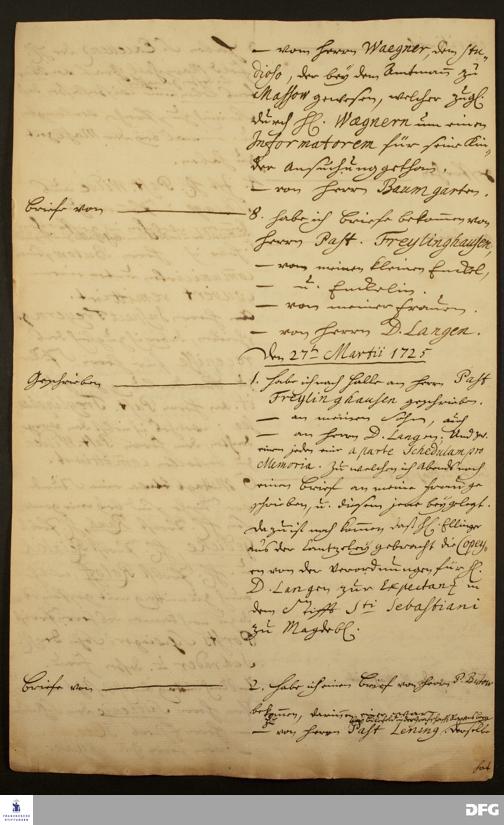 – vom Herrn Waegner, dem Stu-
dioso, der bey dem Amtmann zu
Massow gewesen, welcher zugl.
durch H. Wægnern um einen
Informatorem für seine Kin-
der Ansuchung gethan.
– von Herrn Baumgarten.
Briefe von
8. habe ich Briefe bekommen von
Herrn Past. Freylinghausen,
– von meinen kleinen Enckel,
– u. Enckelin.
– von meiner Frauen.
– von Herrn D. Langen.
Den 27ten Martii 1725
Geschrieben
1. habe ich nach Halle an Herrn Past
Freylinghausen geschrieben.
– an meinen Sohn, auch
– an Herrn D. Langen. Und zw.
einen jeden eine aparte Schedulam pro
Memoria. Zu welchen ich abends noch
einen Brief an meine Frau ge
schrieben, u. diesem jene beygelegt.
Dazu ist noch kommen daß H. Ellinger
aus der Cantzeley gebracht die Copey-
en von der Verordnungen für H.
D. Langen zur Expectantz in
dem Stifft Sti Sebastiani
zu Magdeb.
Briefe von
2. habe ich einen Brief von Herrn P.
bekommen, darinnen
– von Herrn Past Lening, derselbe
hat
FRANCKESCHE
STIFTUNGEN
DFG